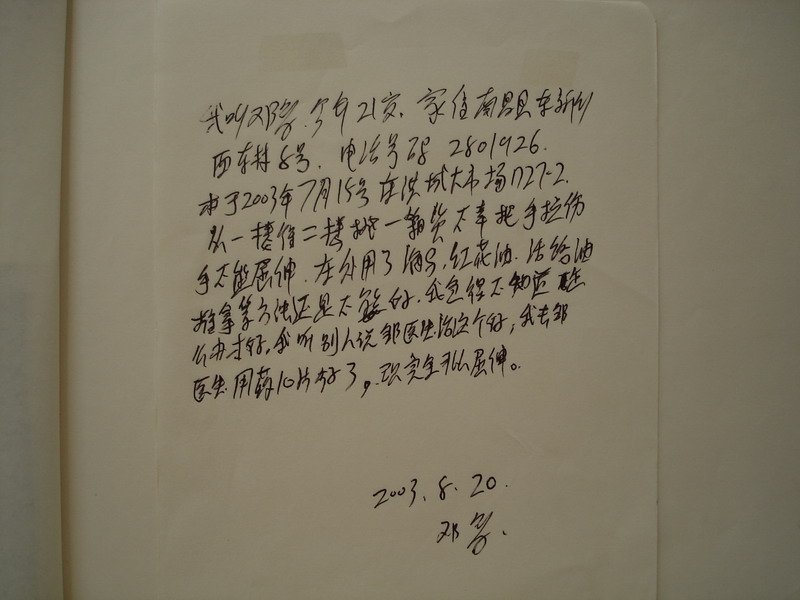 我叫邓 今年21岁. 家住南昌县东新乡
西东村8号. 电话号码 2801926.
本于2003年7月15号在洪城大市场1727-2.
从一楼往二楼搬一箱货不幸把手拉伤
手不能屈伸. 在外用了 红花油. 活络油
推拿等方法还是不能好. 我已经不知道
办才好. 我听别人说邹医生治这个好, 我去邹
医生用药10片好了, 现完全可以屈伸。
2003. 8. 20.
邓